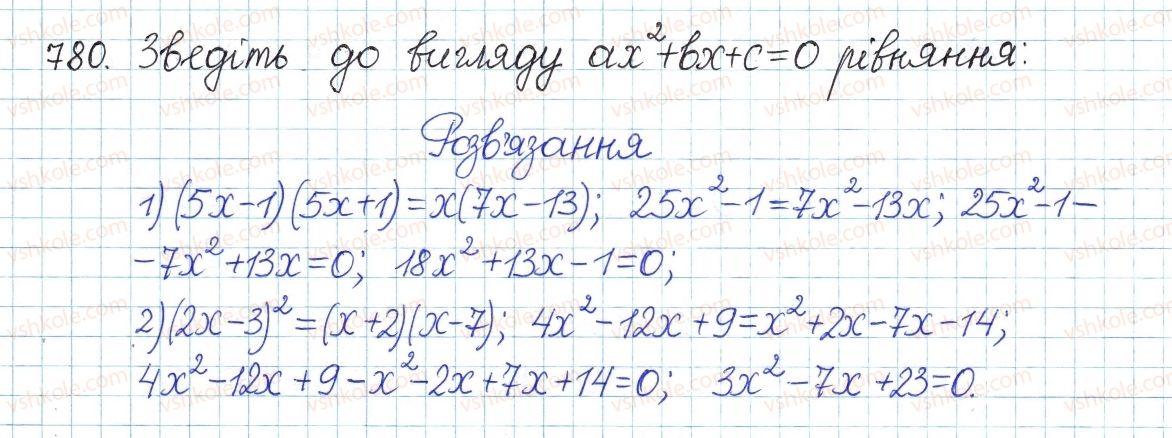 780. Зведіть до вигляду ax²+bx+c=0 рівняння:
Розв'язання
1) (5x-1)(5x+1)=x(7x-13); 25x²-1=7x²-13x; 25x²-1-
-7x²+13x=0; 18x²+13x-1=0;
2) (2x-3)²=(x+2)(x-7); 4x²-12x+9=x²+2x-7x-14;
4x²-12x+9-x²-2x+7x+14=0; 3x²-7x+23=0.